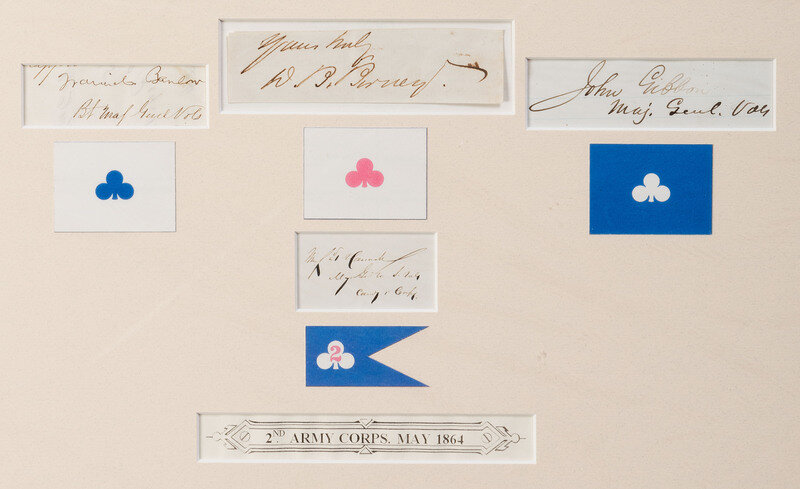 Francis Barlow
Bt Maj Genl Vols
Yours truly
D. B. Birney.
John Gibbon
Maj. Genl. Vols
Winfd S Hancock
Maj Genl U S Vols
Comg 2 Corps.
2
2ND ARMY CORPS. MAY 1864